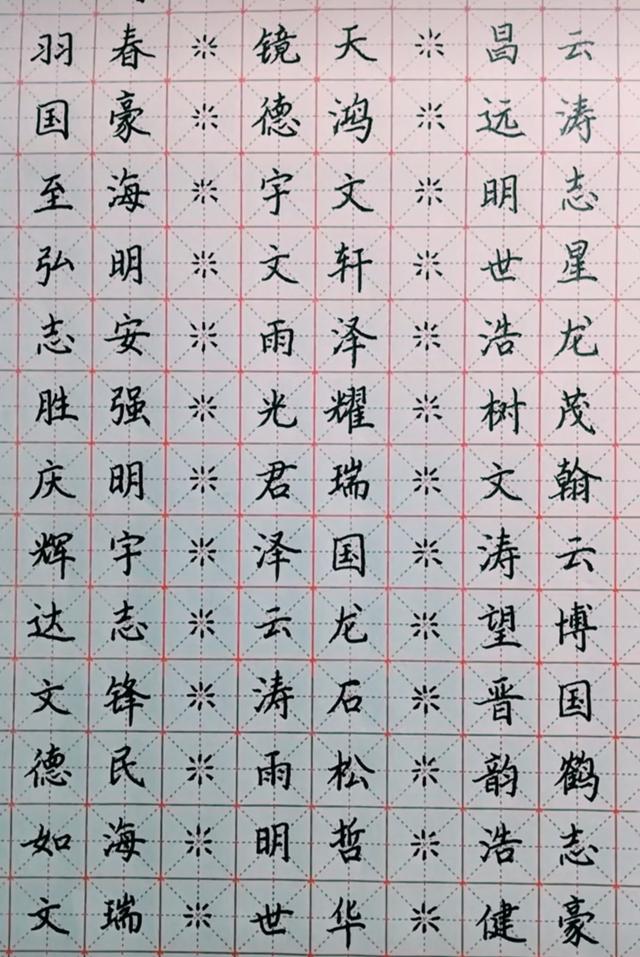 羽春※镜天※昌云
国豪※德鸿※远涛
至海※宇文※明志
弘明※文轩※世星
志安※雨泽※浩龙
胜强※光耀※树茂
庆明※君瑞※文翰
辉宇※泽国※涛云
达志※云龙※望博
文锋※涛石※晋国
德民※雨松※韵鹤
如海※明哲※浩志
文瑞※世华※健豪